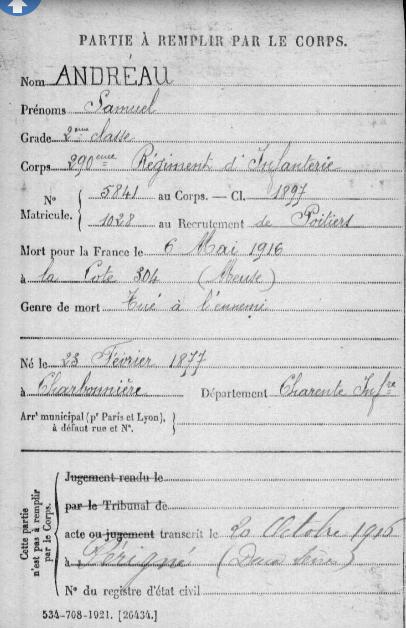 PARTIE À REMPLIR PAR LE CORPS.
Nom ANDRÉAU
Prénoms Samuel
Grade 2ème classe
Corps 290ème Régiment d'Infanterie
N° Matricule. { 5841 au Corps. — Cl. 1897
1028 au Recrutement de Poitiers
Mort pour la France le 6 Mai 1916
à la Cote 304 (Meuse)
Genre de mort Tué à l'ennemi
Né le 23 Février 1877
à Charbonnière Département Charente Infre
Arrt municipal (pr Paris et Lyon), à défaut rue et N°. }
Cette partie n'est pas à remplir par le Corps. {
Jugement rendu le
par le Tribunal de
acte ou jugement transcrit le 20 Octobre 1916
à Périgné (Deux Sèvres)
N° du registre d'état civil
534-708-1921. [26434.]